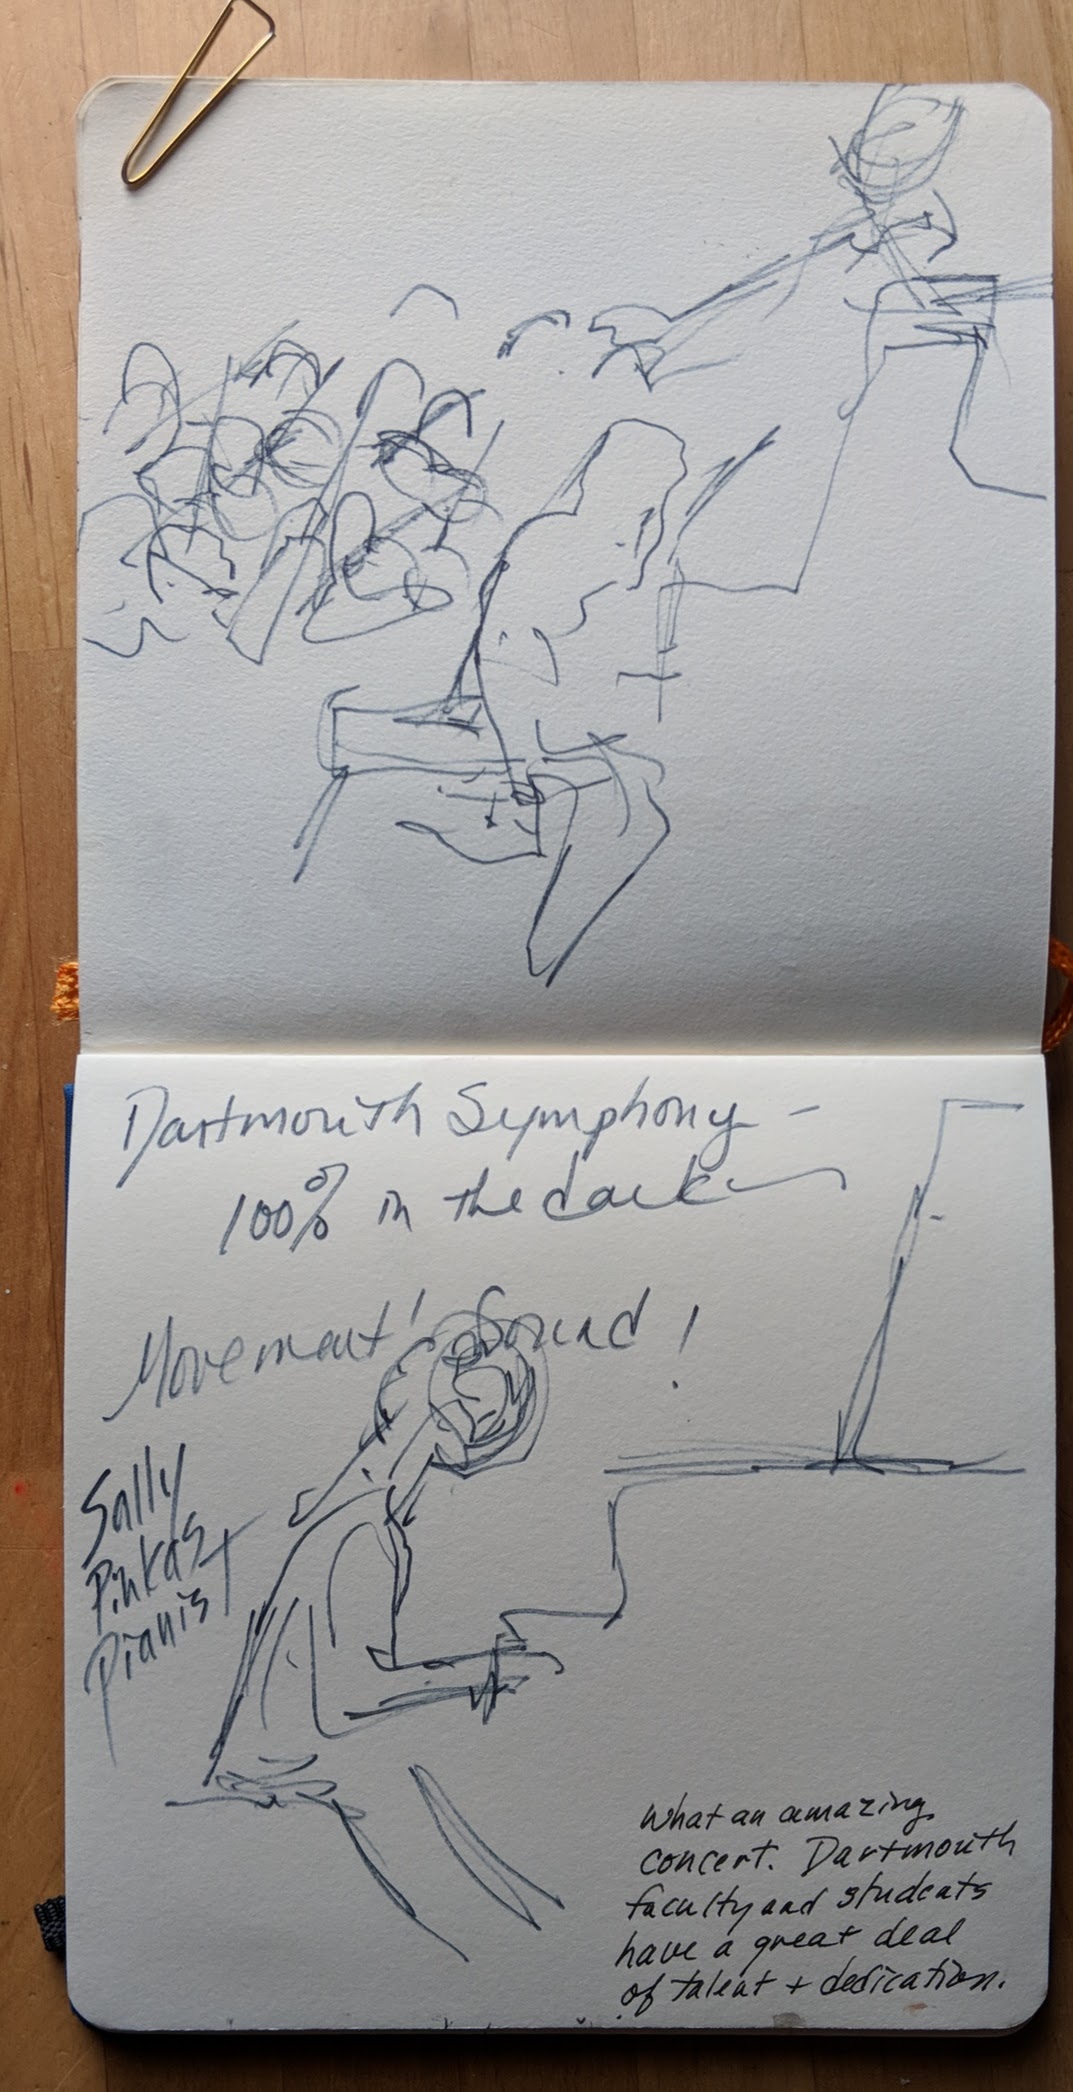 Dartmouth Symphony -
100% in the dark
Movement! Sound!
Sally
Pinkas
Pianist
What an amazing
concert. Dartmouth
faculty and students
have a great deal
of talent + dedication.